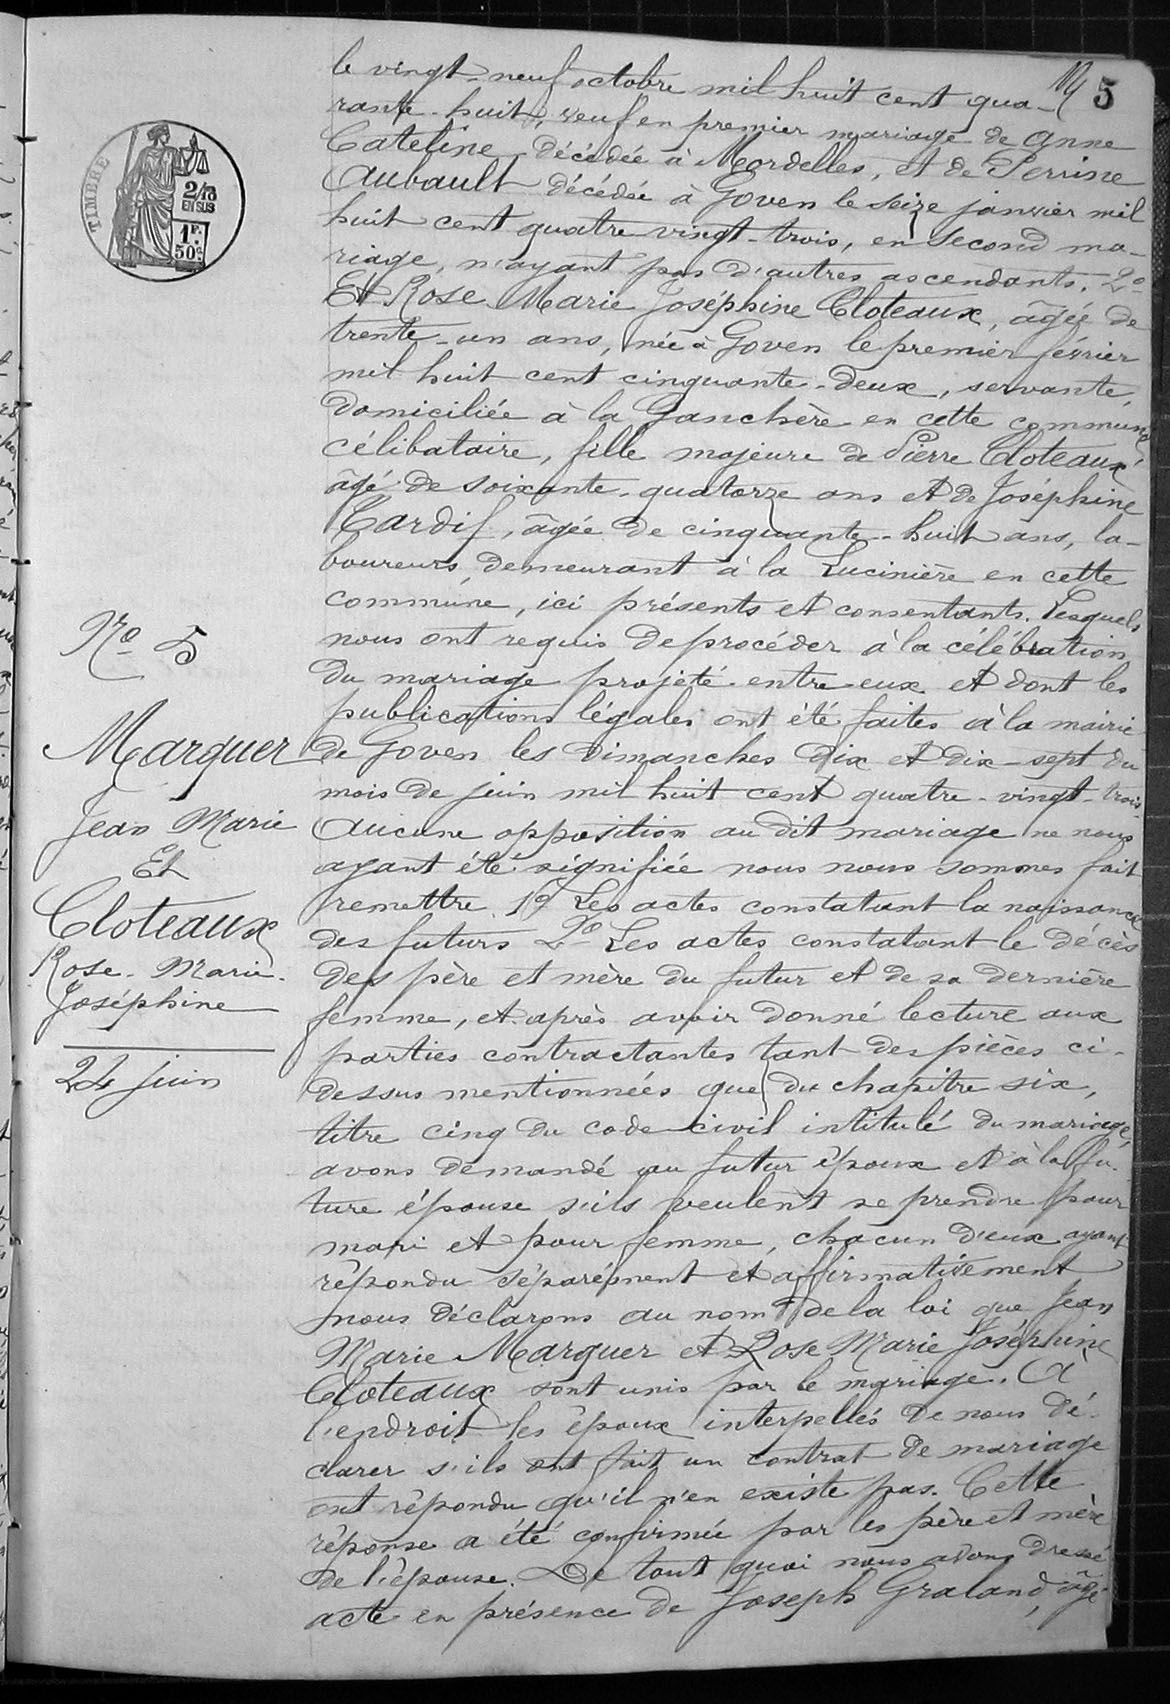 5
TIMBRE
2/10
EN SUS
1F.
50c.
le vingt-neuf octobre mil huit cent qua-
rante-huit, veuf en premier mariage de Anne
Cateline décédée à Mordelles, et de Perrine
Aubault décédée à Goven le seize janvier mil
huit cent quatre vingt-trois, en second ma-
riage, n'ayant pas d'autres ascendants. 2o
Et Rose Marie Joséphine Cloteaux, âgée de
trente-un ans, née à Goven le premier février
mil huit cent cinquante-deux, servante,
domiciliée à la Ganchère en cette commune
célibataire, fille majeure de Pierre Cloteaux
âgé de soixante-quatorze ans et de Joséphine
Tardif, âgée de cinquante-huit ans, la-
boureurs, demeurant à la Lucinière en cette
commune, ici présents et consentants. Lesquels
nous ont requis de procéder à la célébration
du mariage projeté entre eux et dont les
publications légales ont été faites à la mairie
de Goven les dimanches dix et dix-sept du
mois de juin mil huit cent quatre-vingt-trois
Aucune opposition au dit mariage ne nous
ayant été signifiée nous nous sommes fait
remettre 1o Les actes constatant la naissance
des futurs 2o Les actes constatant le décès
des père et mère du futur et de sa dernière
femme, et après avoir donné lecture aux
parties contractantes tant des pièces ci-
dessus mentionnées que du chapitre six,
titre cinq du code civil intitulé du mariage,
avons demandé au futur époux et à la fu-
ture épouse s'ils veulent se prendre pour
mari et pour femme, chacun d'eux ayant
répondu séparément et affirmativement
nous déclarons au nom de la loi que Jean
Marie Marquer et Rose Marie Joséphine
Cloteaux sont unis par le mariage. A
l'endroit les époux interpellés de nous dé-
clarer s'ils ont fait un contrat de mariage
ont répondu qu'il n'en existe pas. Cette
réponse a été confirmée par les père et mère
de l'épouse. De tout quoi nous avons dressé
acte en présence de Joseph Graland, âgé
Nro 5
Marquer
Jean Marie
Et
Cloteaux
Rose-Marie-
Joséphine
24 juin